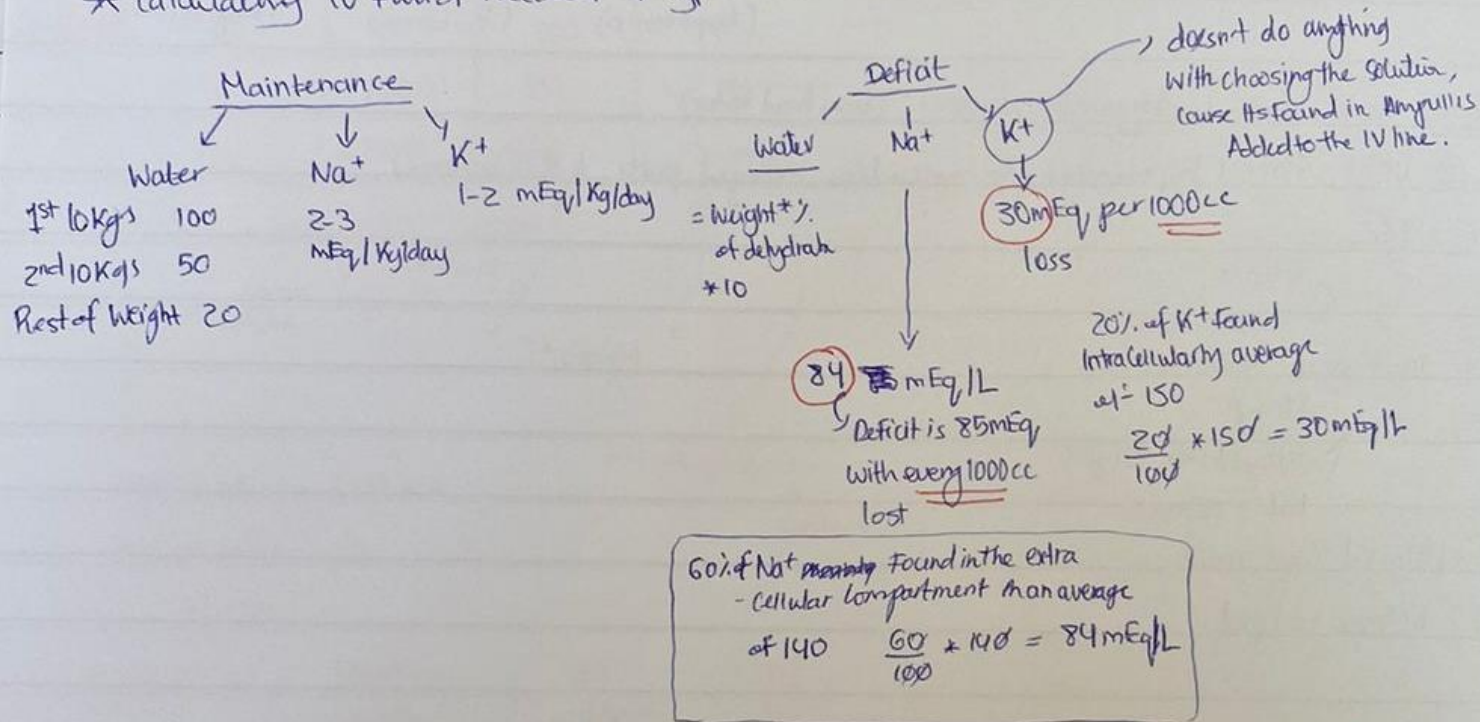 * Calculating IV
Maintenance
Water
1st 10Kgs 100
2nd 10Kgs 50
Rest of Weight 20
Na+
2-3
mEq/Kg/day
K+
1-2 mEq/Kg/day
Deficit
Water
= Weight * %
of dehydratn
*10
Na+
84 mEq/L
Deficit is 85mEq
with every 1000cc
lost
60% of Na+ Found in the extra
- Cellular Compartment
average
of 140 60/100 * 140 = 84mEq/L
K+
doesn't do anything
With choosing the Solution,
Cause Its Found in Ampullis
Added to the IV line.
30mEq per 1000cc
loss
20% of K+ found
IntraCellularly average
of 150
20/100 *150 = 30mEq/L